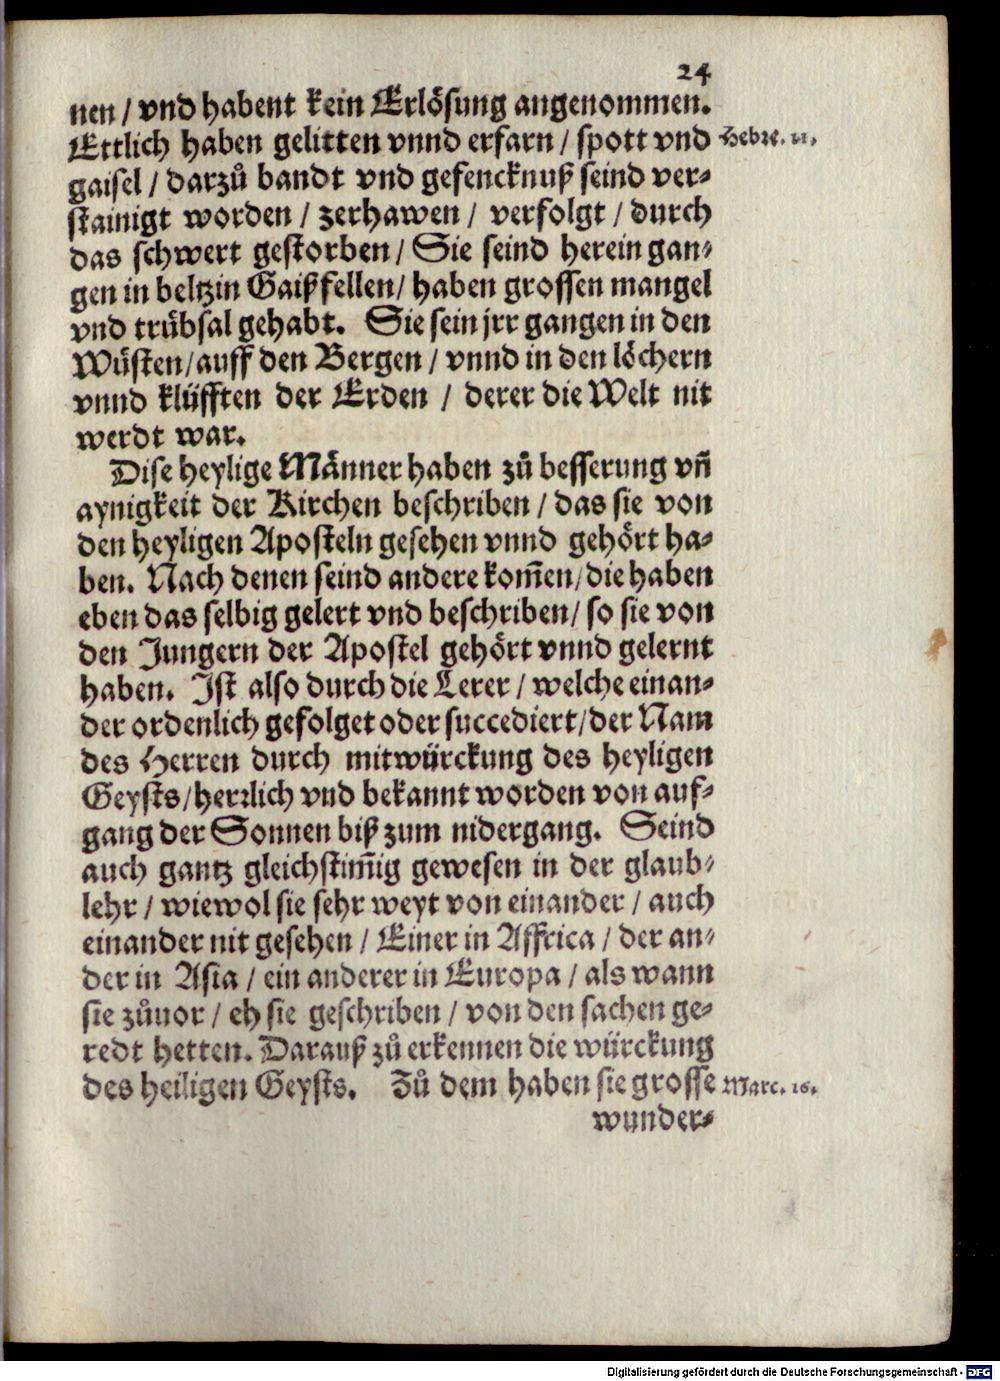 24
nen / vnd habent kein Erlösung angenommen.
Ettlich haben gelitten vnnd erfarn / spott vnd Hebre. 11.
gaisel / darzů bandt vnd gefencknuß seind ver-
stainigt worden / zerhawen / verfolgt / durch
das schwert gestorben / Sie seind herein gan-
gen in beltzin Gaißfellen / haben grossen mangel
vnd trübsal gehabt. Sie sein jrr gangen in den
Wüsten / auff den Bergen / vnnd in den löchern
vnnd klüfften der Erden / derer die Welt nit
werdt war.
Dise heylige Männer haben zů besserung vñ
aynigkeit der Kirchen beschriben / das sie von
den heyligen Aposteln gesehen vnnd gehört ha-
ben. Nach denen seind andere kom̃en / die haben
eben das selbig gelert vnd beschriben / so sie von
den Jungern der Apostel gehört vnnd gelernt
haben. Ist also durch die Lerer / welche einan-
der ordenlich gefolget oder succediert / der Nam
des Herren durch mitwürckung des heyligen
Geysts / herrlich vnd bekannt worden von auf-
gang der Sonnen biß zum nidergang. Seind
auch gantz gleichstim̃ig gewesen in der glaub-
lehr / wiewol sie sehr weyt von einander / auch
einander nit gesehen / Einer in Affrica / der an-
der in Asia / ein anderer in Europa / als wann
sie zůuor / eh sie geschriben / von den sachen ge-
redt hetten. Darauß zů erkennen die würckung
des heiligen Geysts. Zů dem haben sie grosse Marc. 16.
wunder-
Digitalisierung gefördert durch die Deutsche Forschungsgemeinschaft - DFG